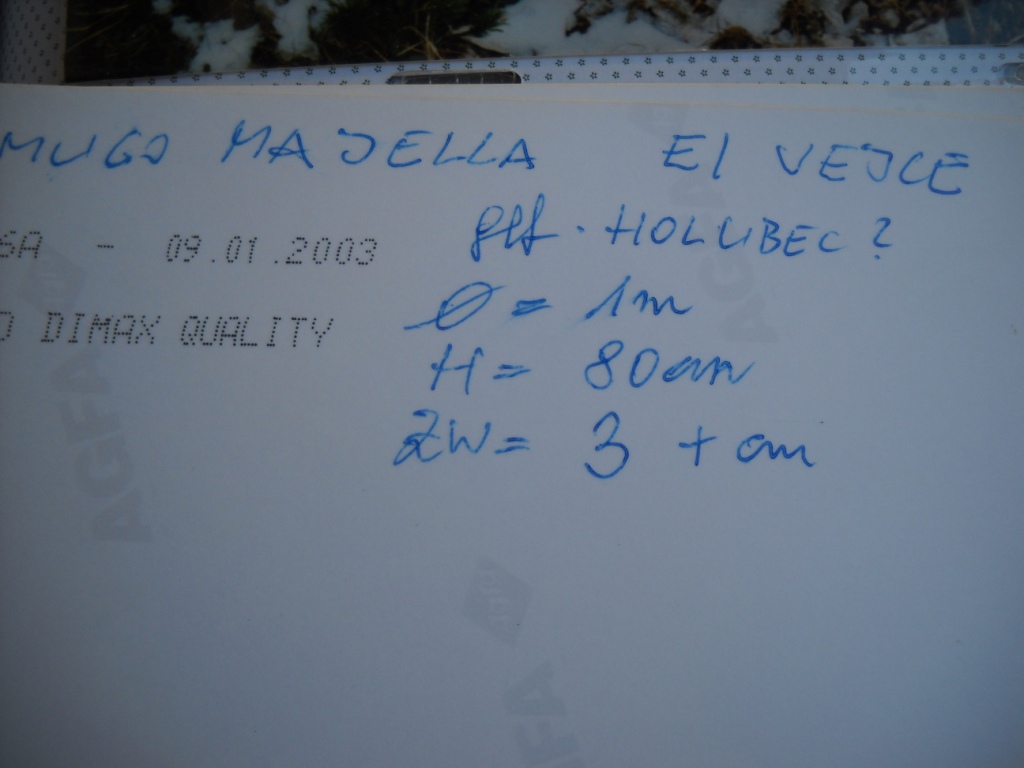 MUGO MAJELLA EI VEJCE
gef. HOLUBEC?
SA - 09.01.2003
Ø = 1m
O DIMAX QUALITY
H = 80cm
ZW = 3 + cm
AGFA
AGFA
AGFA